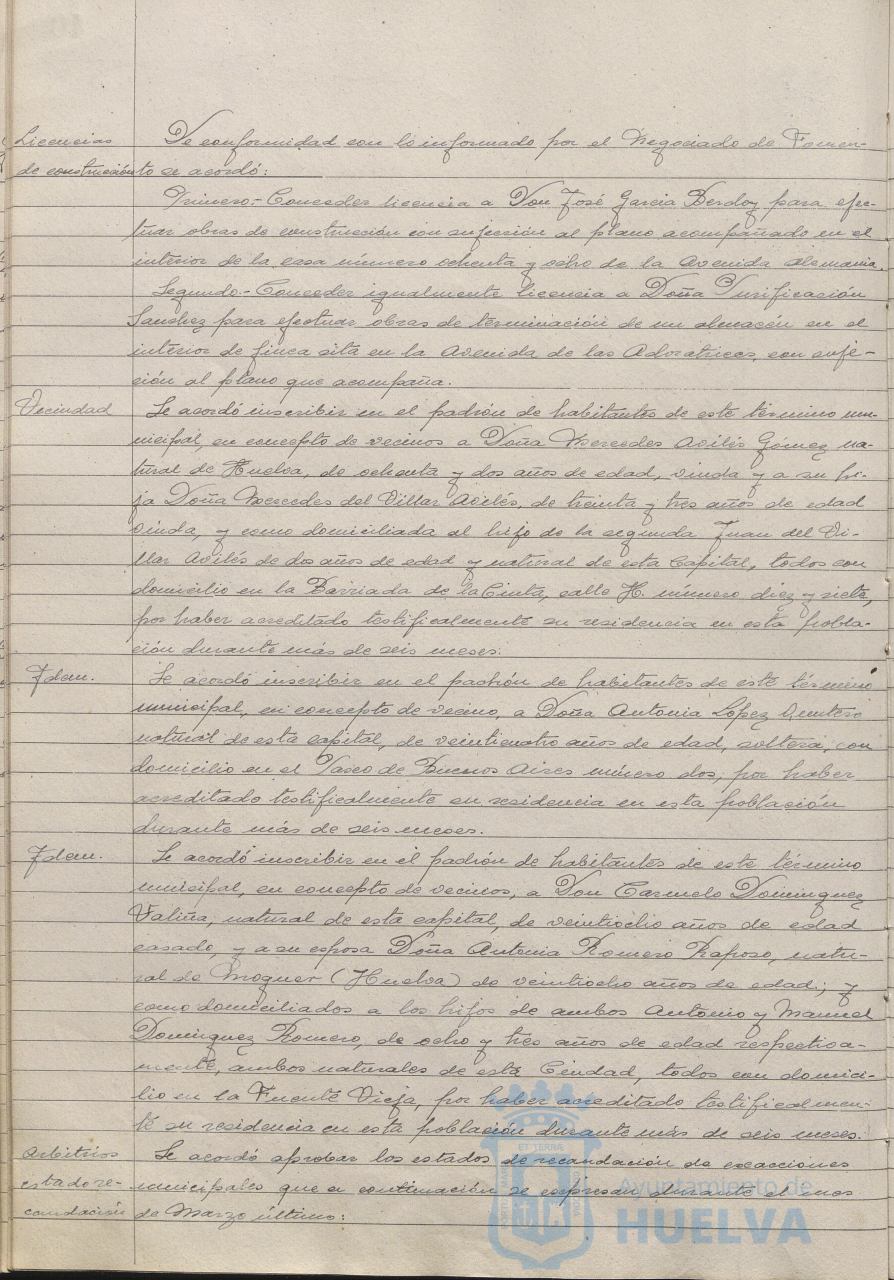 Licencias
de construcción
De conformidad con lo informado por el Negociado de Fomen-
to se acordó:
Primero.- Conceder licencia a Don José García Berdoy para efec-
tuar obras de construcción con sujección al plano acompañado en el
interior de la casa número ochenta y ocho de la Avenida Alemania.
Segundo.- Conceder igualmente licencia a Doña Purificación
Sanchez para efectuar obras de terminación de un almacén en el
interior de finca sita en la Avenida de las Adoratrices, con suje-
ción al plano que acompaña.
Vecindad
Se acordó inscribir en el padrón de habitantes de este término mu-
nicipal, en concepto de vecinos a Doña Mercedes Avilés Gómez na-
tural de Huelva, de ochenta y dos años de edad, viuda y a su hi-
ja Doña Mercedes del Villar Avilés, de treinta y tres años de edad
viuda, y como domiciliada al hijo de la segunda Juan del Vi-
llar Avilés de dos años de edad y natural de esta Capital, todos con
domicilio en la Barriada de la Cinta, calle H. número diez y siete,
por haber acreditado testificalmente su residencia en esta pobla-
ción durante más de seis meses.
Idem.
Se acordó inscribir en el padrón de habitantes de este término
municipal, en concepto de vecino, a Doña Antonia López Quintero
natural de esta capital, de veinticuatro años de edad, soltera, con
domicilio en el Paseo de Buenos Aires número dos, por haber
acreditado testificalmente su residencia en esta población
durante más de seis meses.
Idem.
Se acordó inscribir en el padrón de habitantes de este término
municipal, en concepto de vecinos, a Don Carmelo Dominguez
Faliña, natural de esta capital, de veintiocho años de edad
casado, y a su esposa Doña Antonia Romero Raposo, natu-
ral de Moguer (Huelva) de veintiocho años de edad; y
como domiciliados a los hijos de ambos Antonio y Manuel
Dominguez Romero, de ocho y tres años de edad respectiva-
mente, ambos naturales de esta Ciudad, todos con domici-
lio en la Fuente Vieja, por haber acreditado testificalmen-
te su residencia en esta población durante más de seis meses.
Arbitrios
estado re-
caudación
Se acordó aprobar los estados de recaudación de exacciones
municipales que a continuación se expresan durante el mes
de Marzo último:
Ayuntamiento de
HUELVA